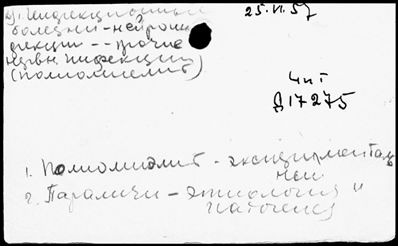 Инфекционные 25.VI.57
болезни - нейроин
фекции -- прочие
нервн. инфекции
(полиомиелит)
Чит
Д17275
1. Полиомиэлит - эксперименталь
ный
2. Параличи - этиология "
патогенез